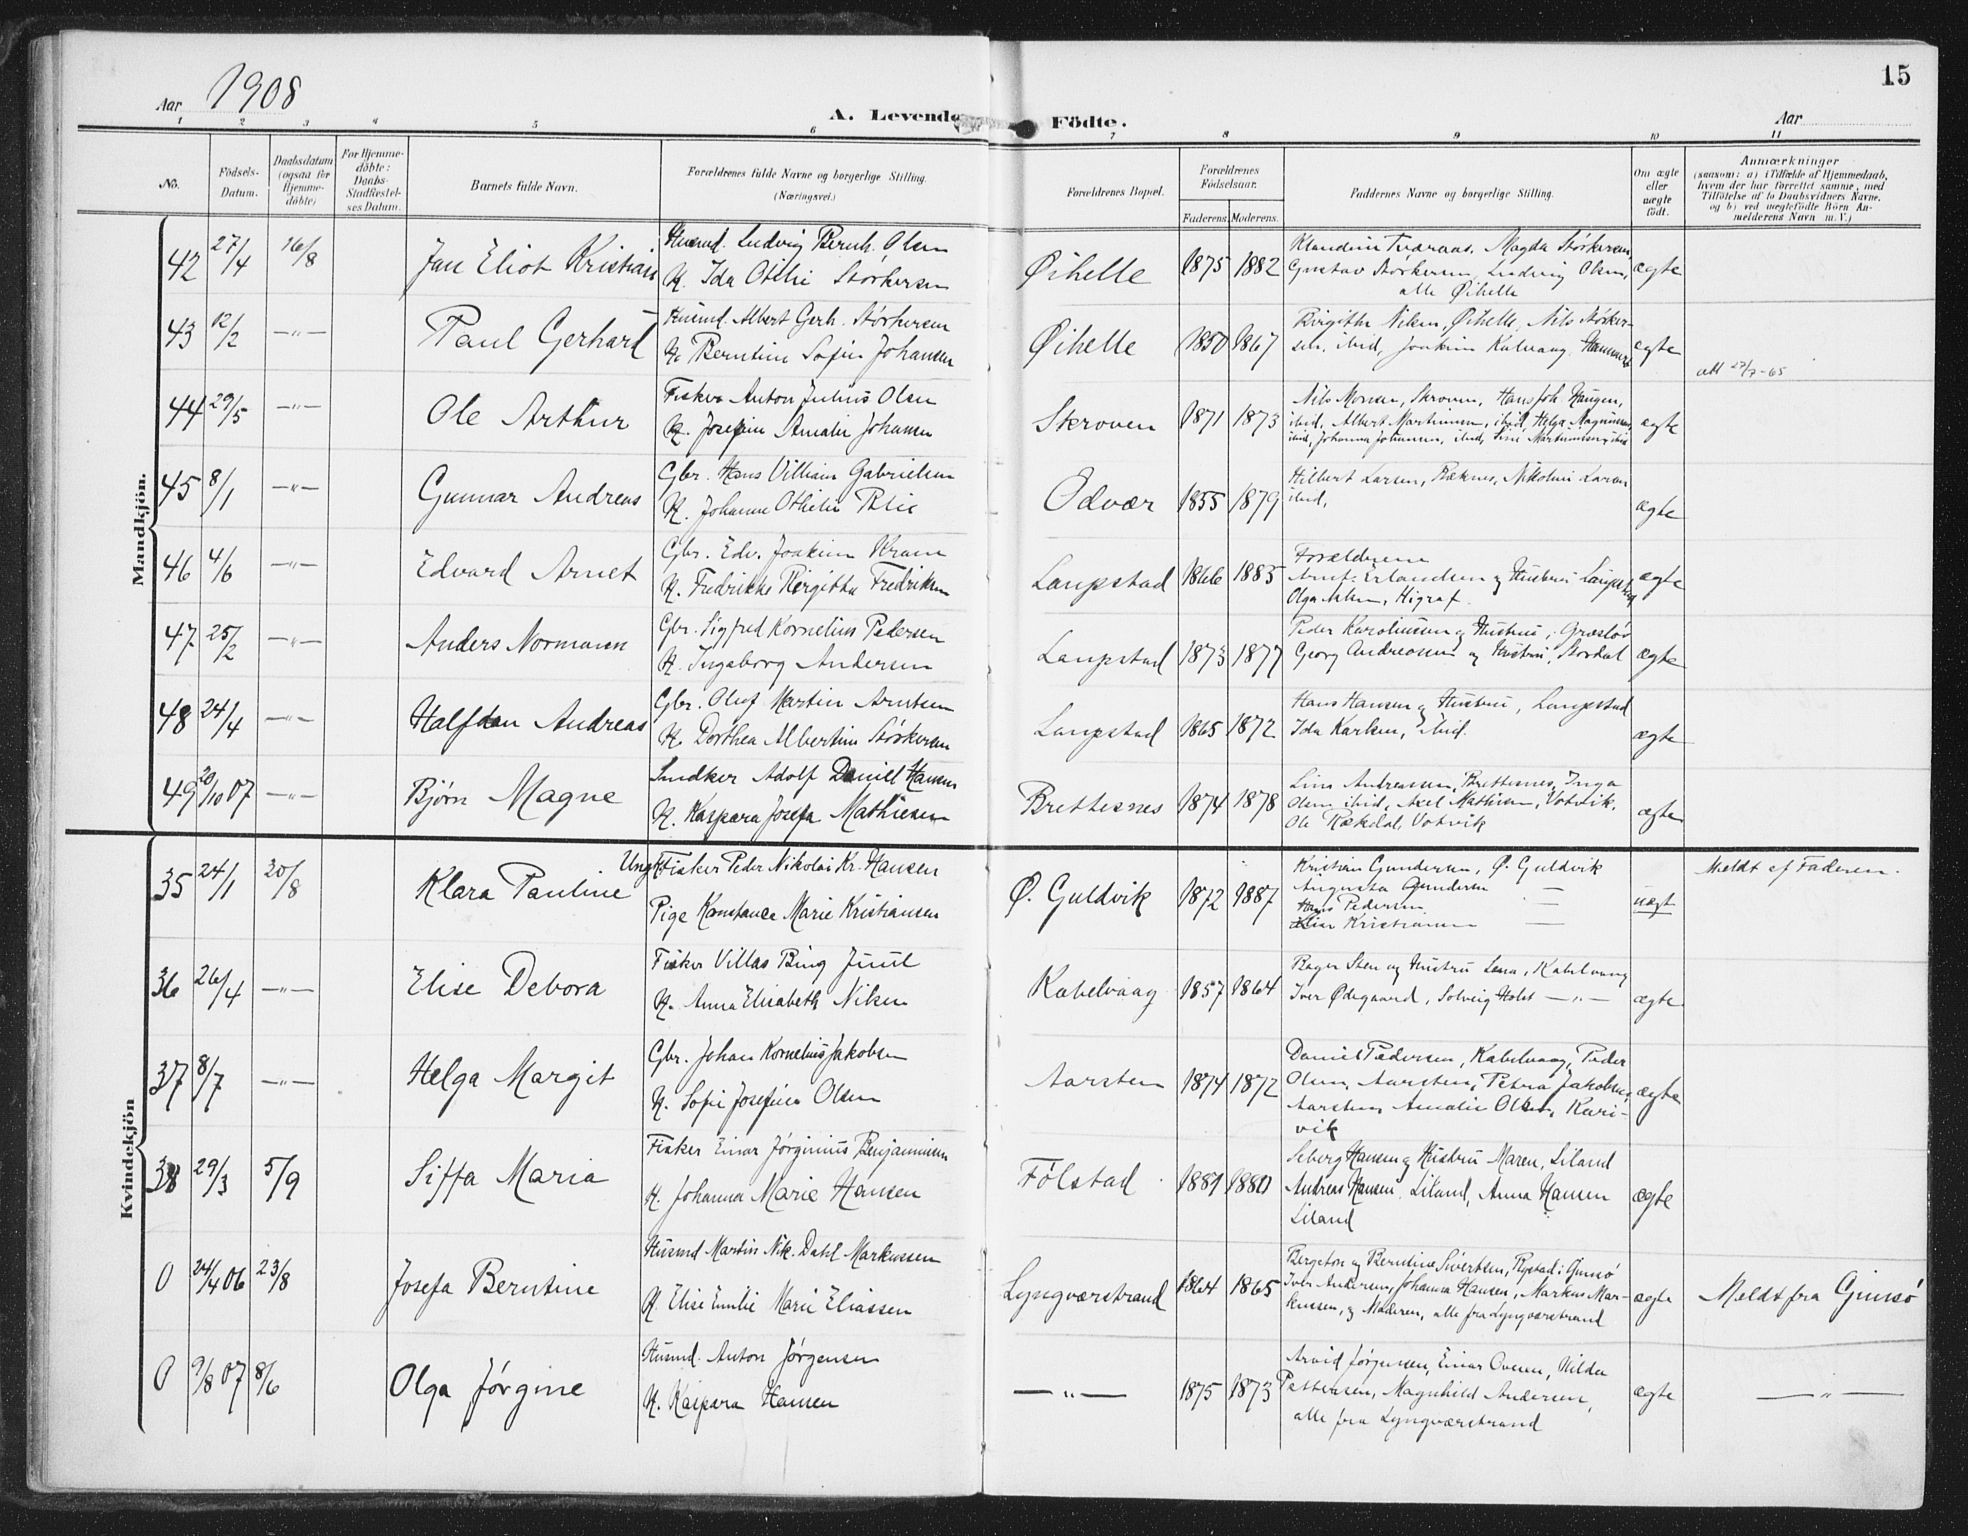 Aar 1908
A. Levende Födte.
Aar
15
1 2 3 4 5 6 7 8 9 10 11
No.
Födsels-Datum.
Daabsdatum (ogsaa for Hjemmedöbte)
For Hjemmedöbte: Daabs-Stadfæstelses Datum.
Barnets fulde Navn.
Forældrenes fulde Navne og borgerlige Stilling. (Næringsvei.)
Forældrenes Bopæl.
Forældrenes Födselsaar.
Faderens. Moderens.
Faddernes Navne og borgerlige Stilling.
Om ægte eller uægte födt.
Anmærkninger
(saasom: a) i Tilfælde af Hjemmedaab, hvem der har forrettet samme, med Tilföielse af to Daabsvidners Navne, og b) ved uægtefödte Börn Anmelderens Navn m. V.)
Mandkjön.
42 27/4 16/8 Jan Eliot Kristian
Husmd. Ludvig Bernh. Olsen
H. Ida Otilie Störkersen
Øihelle 1875 1882
Magda Störkersen,
Gustav Störkersen, Ludvig Olsen,
alle Øihelle
ægte
43 12/2 -"- Paul Gerhard
Husmd. Albert Gerh. Störkersen
H. Berntine Sofie Johansen
Øihelle 1850 1867
Birgithe Nilsen, Øihelle, Nils Störker-
sen, ibid, Joakim Kalvaag,
ægte
att 27/7-65
44 29/5 -"- Ole Arthur
Fisker Anton Julius Olsen
H. Josefine Amalie Johansen
Skroven 1871 1873
Nils Monsen, Skroven, Hans Joh. Haugen,
ibid, Albert Martinussen, ibid, Helga Magnussen,
ibid, Johanna Johansen, ibid, Line Martinussen, ibid
ægte
45 8/1 -"- Gunnar Andreas
Gbr. Hans Villiam Gabrielsen
H. Johanna Othilie Blie
Odvær 1855 1879
Hilbert Larsen, Ræknes, Nikoline Larsen
ibid,
ægte
46 4/6 -"- Edvard Arnet
Gbr. Edv. Joakim Kram
H. Fredrikke Birgitha Fredriksen
Laupstad 1866 1883
Forældrene
Arnt Erlandsen og Hustru Laupstad
Olga Nilsen, Higraf.
ægte
47 25/2 -"- Anders Normann
Gbr. Sigfred Kornelius Pedersen
H. Ingeborg Andersen
Laupstad 1873 1877
Peder Karoliussen og Hustru,
Georg Andreassen og Hustru, Stordal
ægte
48 24/4 -"- Halfdan Andreas
Gbr. Oluf Martin Arntsen
H. Dorthea Albertine Störkersen
Laupstad 1865 1872
Hans Hansen og Hustru, Laupstad
Ida Karlsen, ibid.
ægte
49 20/10 07 -"- Björn Magne
Snedker Adolf Daniel Hansen
H. Kaspara Josefa Mathisen
Brettesnes 1874 1878
Lina Andreassen, Brettesnes, Inga
Olsen ibid, Axel Mathisen, Votvik,
Ole Rækdal, Votvik
ægte
Kvindekjön
35 24/1 30/8 Klara Pauline
Ungk. Fisker Peder Nikolai Kr. Hansen
Pige Konstance Marie Kristiansen
Ø. Guldvik 1872 1887
Kristian Gundersen, Ø. Guldvik
Augusta Gundersen —
Hans Pedersen —
Kristiansen —
uægt
Meldt af Faderen.
36 26/4 -"- Elise Debora
Fisker Villas Bing Juul
H. Anna Elisabeth Nilsen
Kabelvaag 1857 1864
Bager Sten og Hustru Lena, Kabelvaag
Iver Ødegaard, Solveig Holst -"-
ægte
37 8/7 -"- Helga Margit
Gbr. Johan Kornelius Jakobsen
H. Sofie Josefine Olsen
Aarsten 1874 1872
Daniel Pedersen, Kabelvaag, Peder
Olsen, Aarsten, Petra Jakobsen,
Aarsten, Amalie Olsen, Kari-
vik
ægte
38 29/3 5/9 Siffa Maria
Fisker Einar Jörginius Benjaminsen
H. Johanna Marie Hansen
Fölstad 1881 1880
Seberg Hansen og Hustru Maren, Liland
Andreas Hansen, Liland, Anna Hansen
Liland
ægte
0 24/4 06 23/8 Josefa Berntine
Husmd Martin Nik. Dahl Markussen
H. Elise Emilie Marie Eliassen
Lyngværstrand 1864 1865
Bergeton og Berntine Sivertsen, Rystad i Gimsö
Iver Andersen, Johanna Hansen, Markus Mar-
kussen, og Moderen, alle fra Lyngværstrand
ægte
Meldt fra Gimsö
0 9/8 07 8/6 Olga Jörgine
Husmd. Anton Jörgensen
H. Kaspara Hansen
-"- 1875 1873
Arvid Jörgensen, Einar Ovesen, Hilda
Pettersen, Magnhild Andersen,
alle fra Lyngværstrand
ægte
-"-